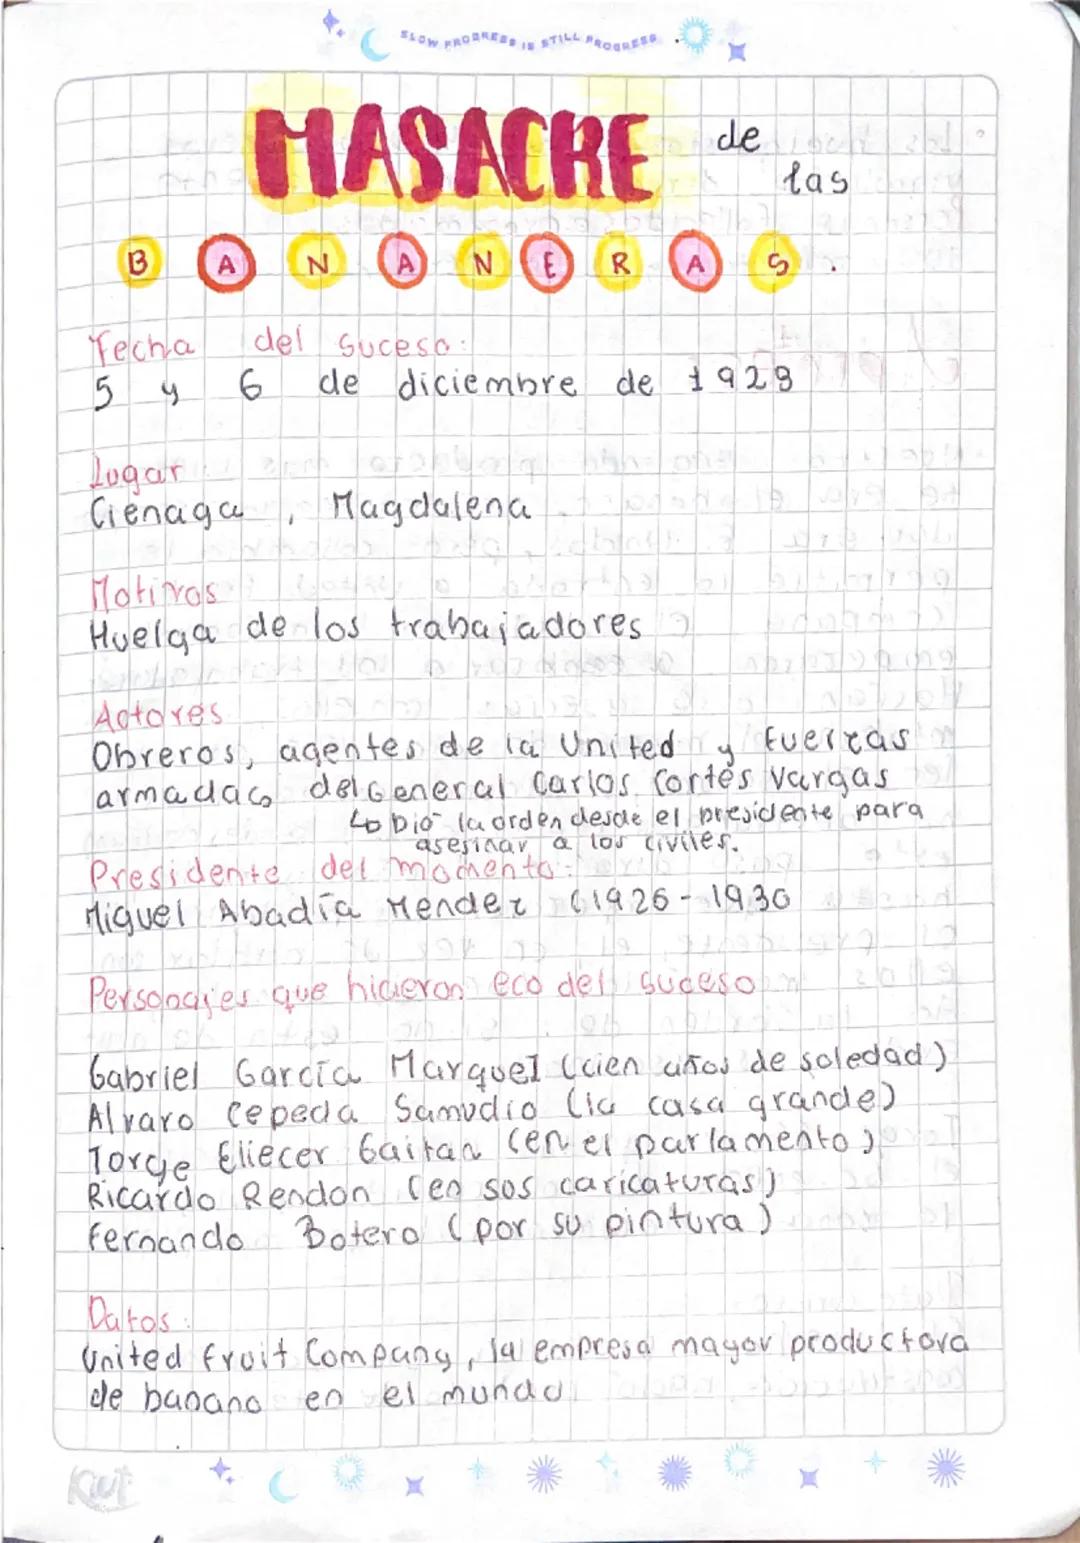 SLOW PROGRESS IS STILL PROGRESS
MASACRE de
las
BANANERAS.
Fecha del suceso:
5 y 6 de diciembre de 1928
Lugar
Cienaga, Magdalena
Motivos
Huelga de los trabajadores
Actores
Obreros, agentes de la United y fuerzas
armadas del General Carlos Cortés Vargas
↳ Dió la orden desde el presidente para
asesinar a los civiles.
Presidente del momento:
Miguel Abadía Mendez (1926-1930
Personajes que hicieron eco del suceso
Gabriel García Marquez (cien años de soledad)
Alvaro Cepeda Samudio (la casa grande)
Jorge Eliecer Gaitan (en el parlamento)
Ricardo Rendon (en sos caricaturas)
Fernando Botero (por su pintura)
Datos:
United fruit Company, la empresa mayor productora
de banano en el mundo